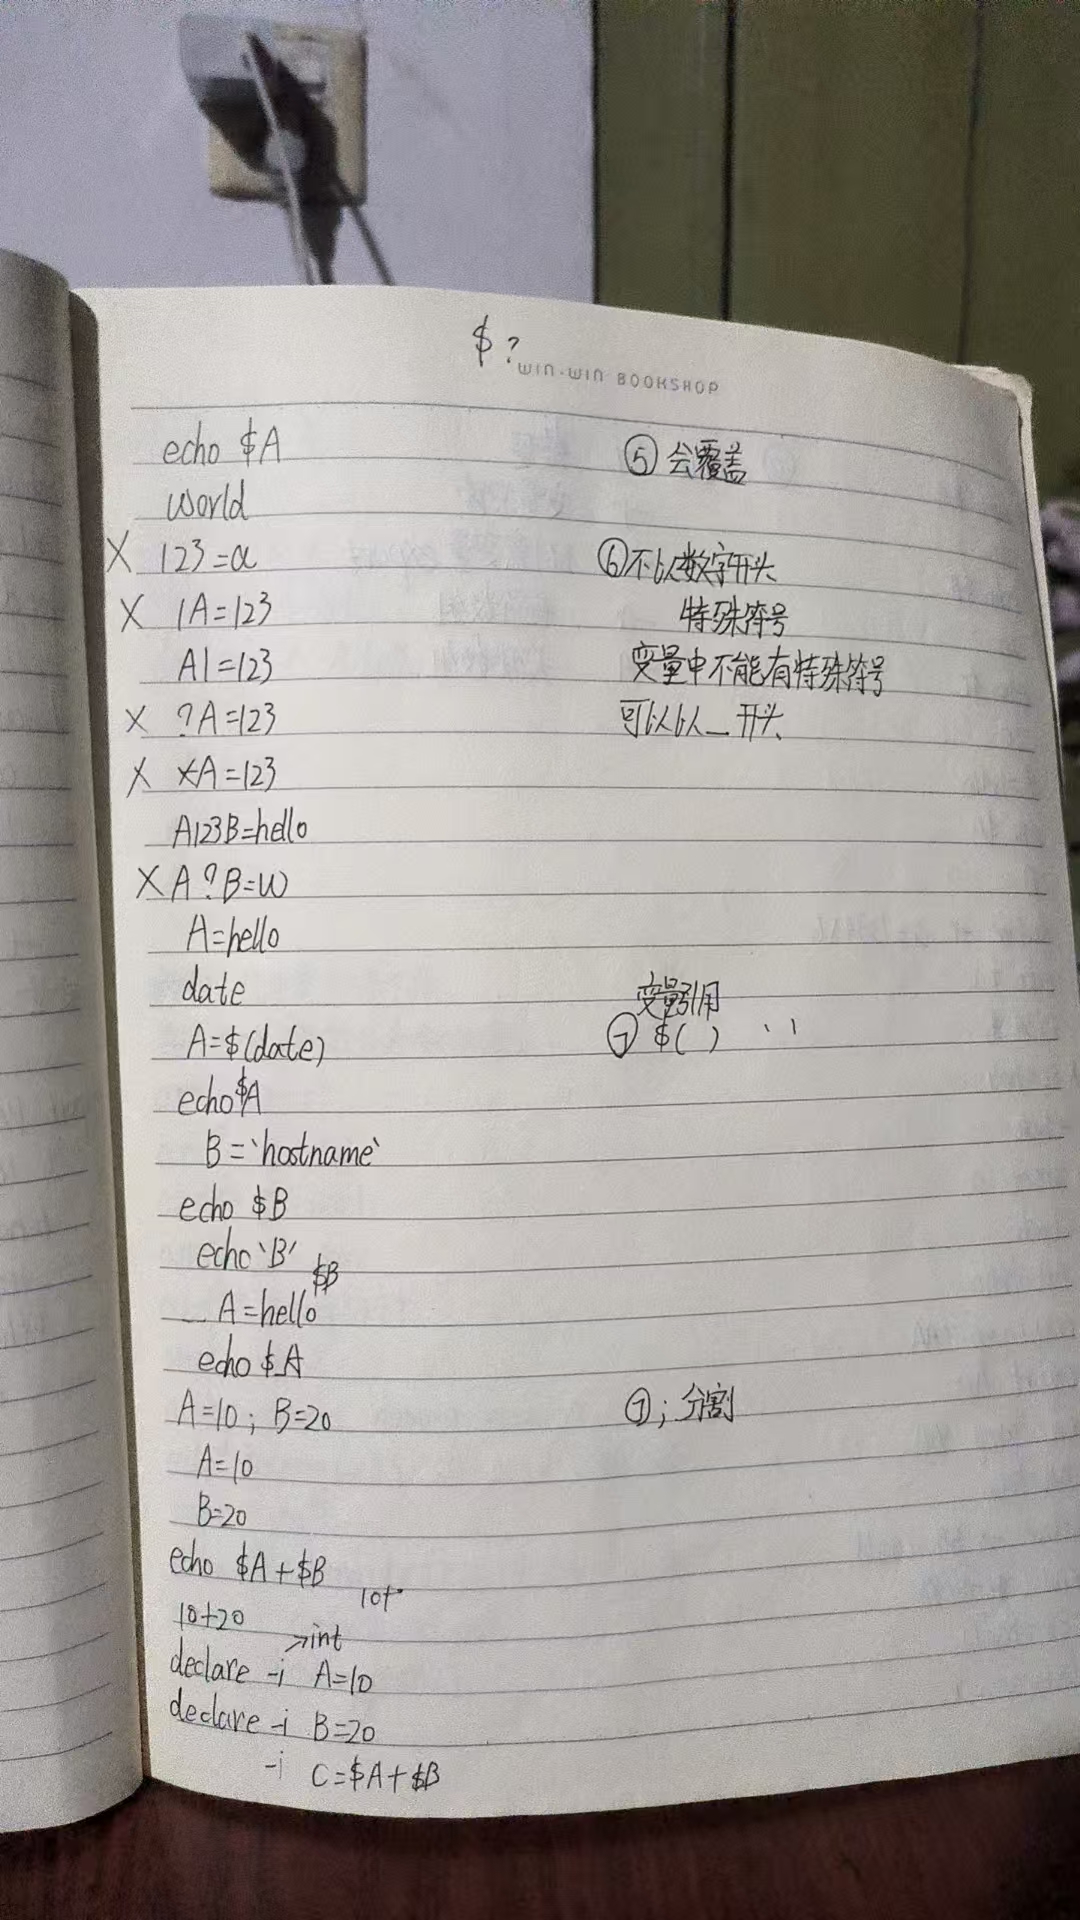 $ ?
WIN·WIN BOOKSHOP
echo $A ⑤ 会覆盖
world
X 123=a ⑥不以数字开头
X 1A=123 特殊符号
A1=123 变量中不能有特殊符号
X ?A=123 可以以_开头
X *A=123
A123B=hello
X A?B=w
A=hello
date 变量引用
A=$(date) ⑦ $( ) ` `
echo$A
B=`hostname`
echo $B
echo 'B' $B
A=hello
echo $A
A=10; B=20 ⑦; 分割
A=10
B=20
echo $A+$B
10+20 10+
>int
declare -i A=10
declare -i B=20
-i C=$A+$B